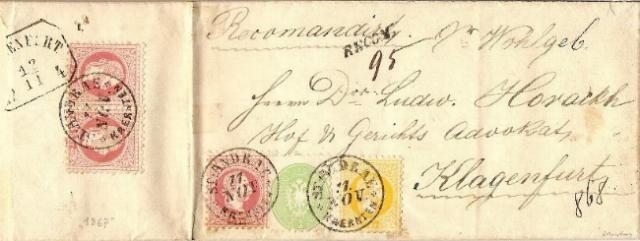 Recomandirt
RECOM.
95
Sr Wohlgeb.
Herrn Dor Ludw. Horackh
Hof u Gerichts Advokat
Klagenfurt
868
ENFURT
12
11
4
KAERNTEN
NOV.
ST. ANDRAE
11
NOV
KAERNTEN
ST. ANDRAE
11
NOV
KAERNTEN
1867